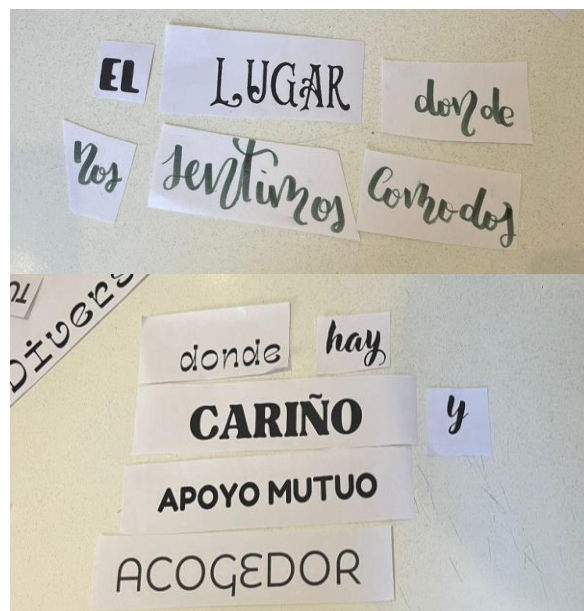 EL LUGAR donde
nos sentimos Comodos
Diverg
donde hay
CARIÑO y
APOYO MUTUO
ACOGEDOR